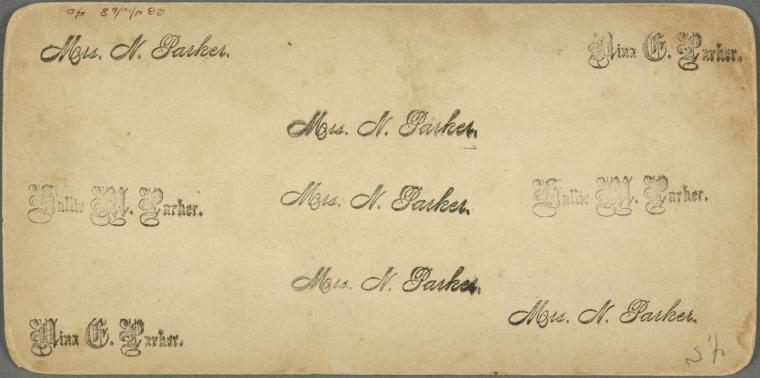 Mrs. N. Parker.
Nina E. Parker.
Mrs. N. Parker.
Hallie M. Parker.
Mrs. N. Parker.
Hallie M. Parker.
Mrs. N. Parker.
Mrs. N. Parker.
Nina E. Parker.